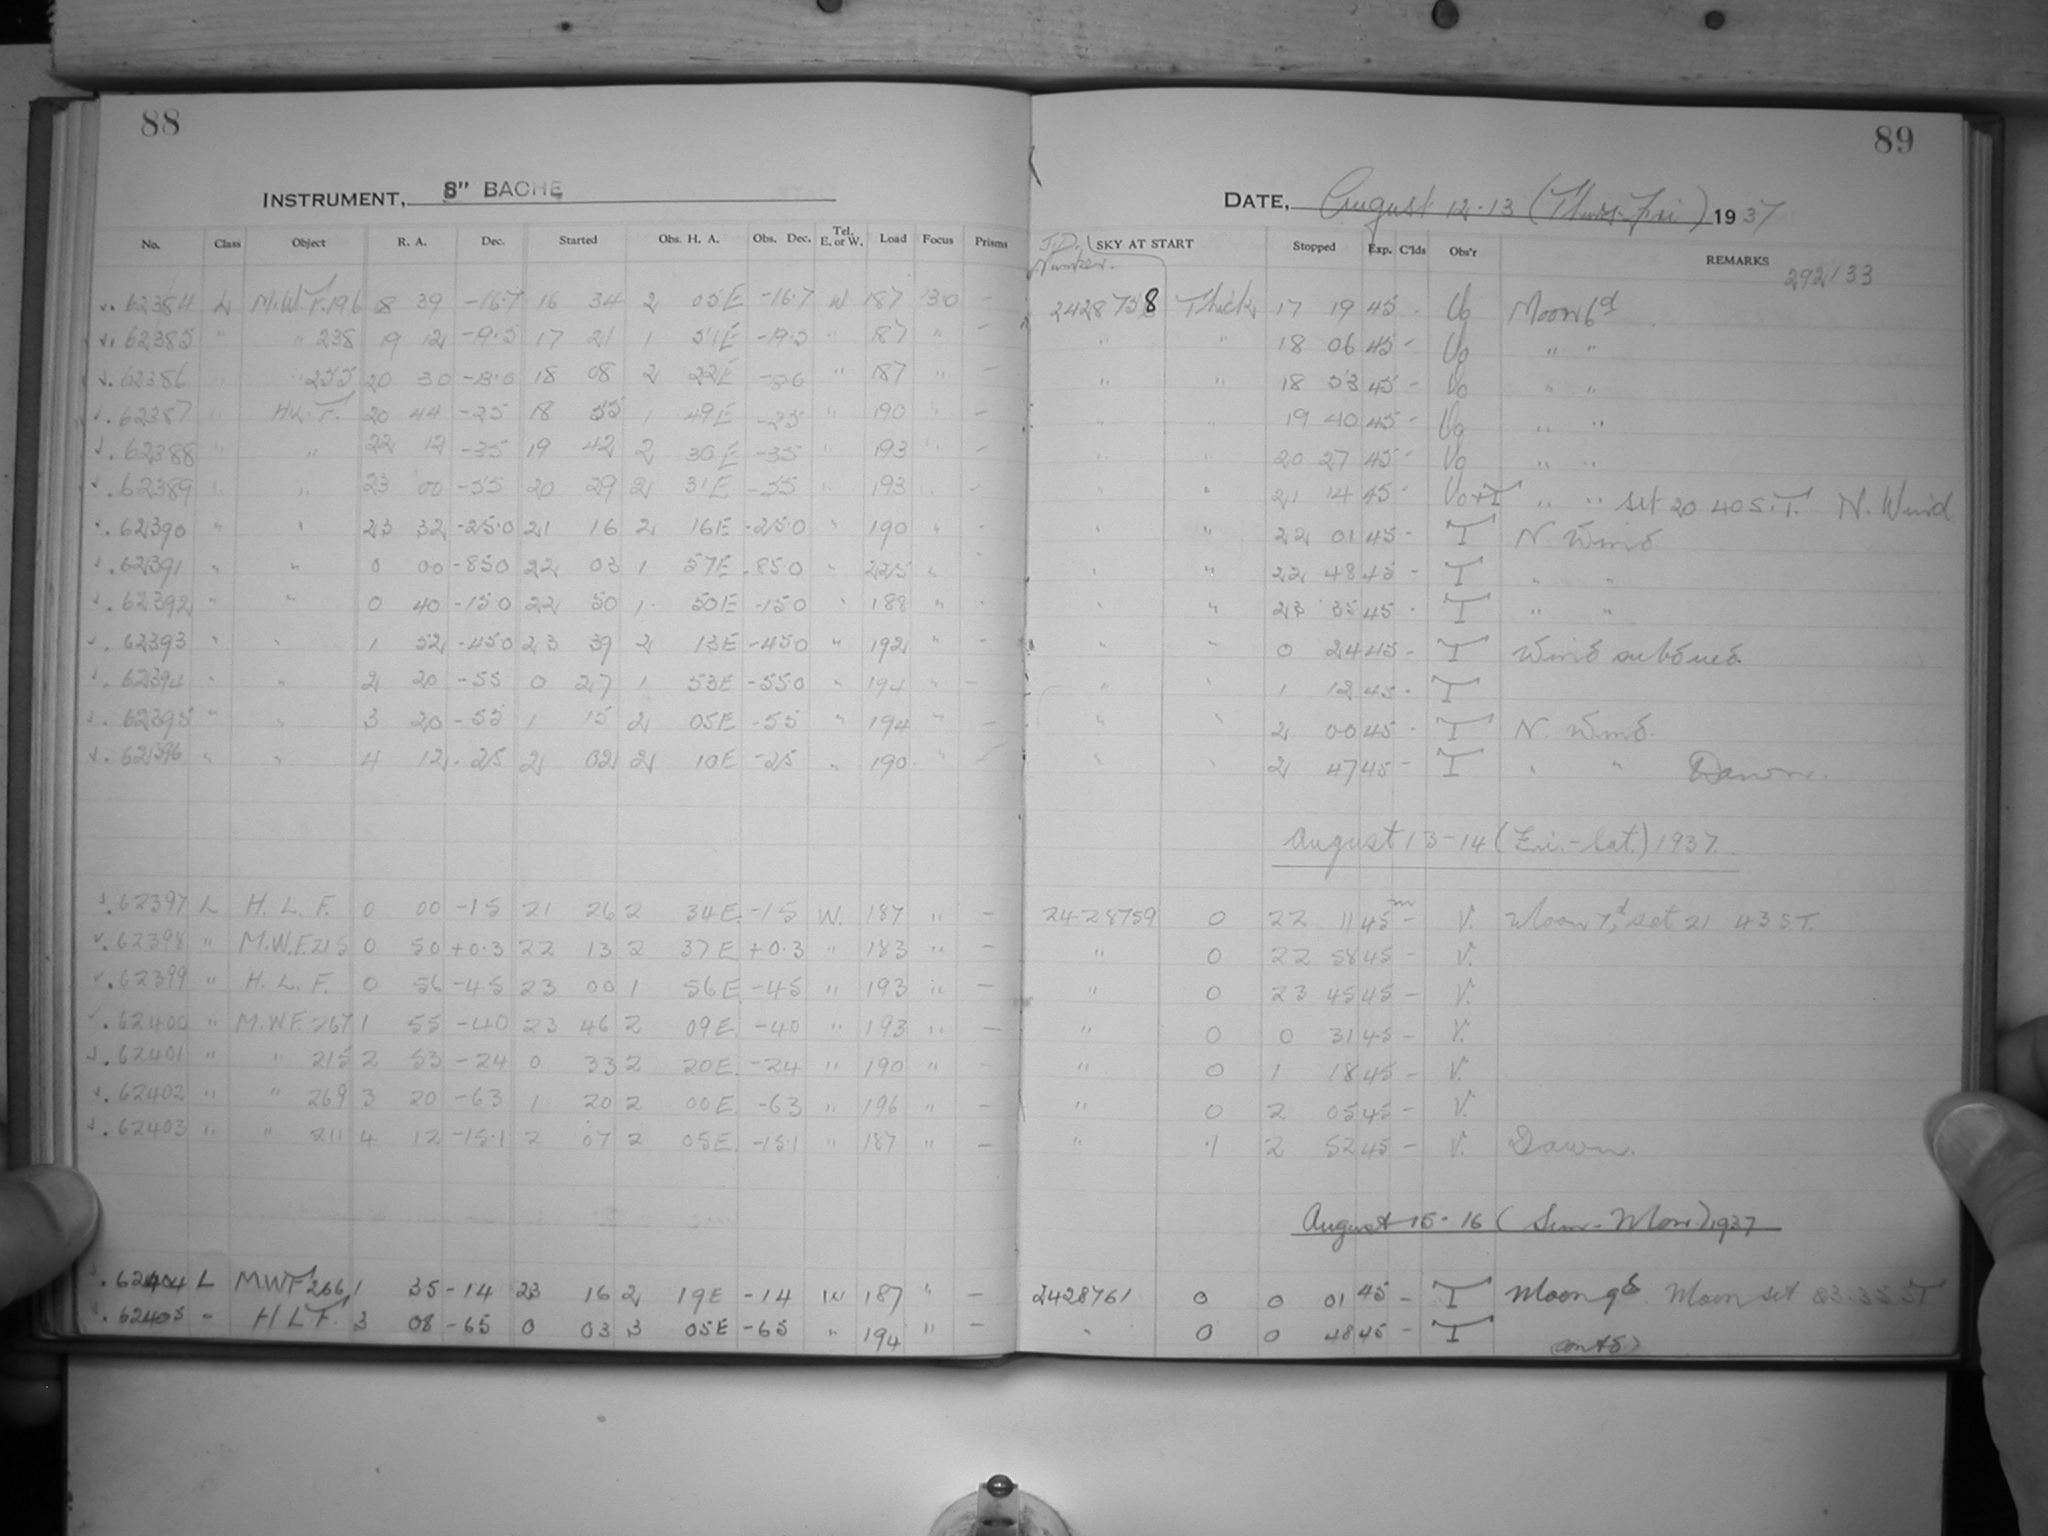 88
89
INSTRUMENT, 8" BACHE
DATE, August 12-13 (Thurs-Fri) 1937
No. Class Object R. A. Dec. Started Obs. H. A. Obs. Dec. Tel. E. or W. Load Focus Prisms J.D. Number. SKY AT START Stopped Exp. C'lds Obs'r REMARKS
292133
62384 L M.W.F. 196 18 39 -16.7 16 34 2 05E -16.7 W 187 30 - 2428758 Thick 17 19 45 - Uo Moon 6d
62385 " " 238 19 12 -19.5 17 21 1 51E -19.5 " 187 " - " " 18 06 45 - Uo " "
62386 " " 255 20 30 18 08 2 22E " 187 " - " " 18 53 45 - Uo " "
62387 " H.L.F. 20 44 -25 18 55 1 49E -25 " 190 " - " " 19 40 45 - Uo " "
62388 " " 22 12 -35 19 42 2 30E -35 " 193 " - " " 20 27 45 - Uo " "
62389 " " 23 00 -55 20 29 2 31E -55 " 193 " - " " 21 14 45 - Uo+T " " set 20 40 S.T. N. Wind
62390 " " 23 32 -25.0 21 16 2 16E -25.0 " 190 " - " " 22 01 45 - T N. Wind
62391 " " 0 00 -85.0 22 03 1 57E -85.0 " 225 " - " " 22 48 45 - T " "
62392 " " 0 40 -15.0 22 50 1 50E -15.0 " 188 " - " " 23 35 45 - T " "
62393 " " 1 52 -45.0 23 39 2 13E -45.0 " 192 " - " " 0 24 45 - T Wind subdued.
62394 " " 2 20 -55 0 27 1 53E -55.0 " 194 " - " " 1 12 45 - T
62395 " " 3 20 -55 1 15 2 05E -55 " 194 " - " " 2 00 45 - T N. Wind.
62396 " " 4 12 -25 2 02 2 10E -25 " 190 " - " " 2 47 45 - T " " Dawn.
August 13-14 (Fri.-Sat.) 1937.
62397 L H. L. F. 0 00 -15 21 26 2 34E. -15 W. 187 " - 2428759 0 22 11 45m - V. Moon 7d, set 21 43 S.T.
62398 " M.W.F. 215 0 50 +0.3 22 13 2 37E +0.3 " 183 " - " 0 22 58 45 - V.
62399 " H. L. F. 0 56 -45 23 00 1 56E -45 " 193 " - " 0 23 45 45 - V.
62400 " M.W.F. 267 1 55 -40 23 46 2 09E. -40 " 193 " - " 0 0 31 45 - V.
62401 " " 215 2 53 -24 0 33 2 20E. -24 " 190 " - " 0 1 18 45 - V.
62402 " " 269 3 20 -63 1 20 2 00E. -63 " 196 " - " 0 2 05 45 - V.
62403 " " 211 4 12 -15.1 2 07 2 05E. -15.1 " 187 " - " .1 2 52 45 - V. Dawn.
August 15-16 (Sun.-Mon.) 1937
62404 L MWF 266 1 35 -14 23 16 2 19E -14 W 187 " - 2428761 0 0 01 45 - T Moon 9d. Moon set 23.35 ST
62405 - HLF. 3 08 -65 0 03 3 05E -65 " 194 " - " 0 0 48 45 - T
(contd.)